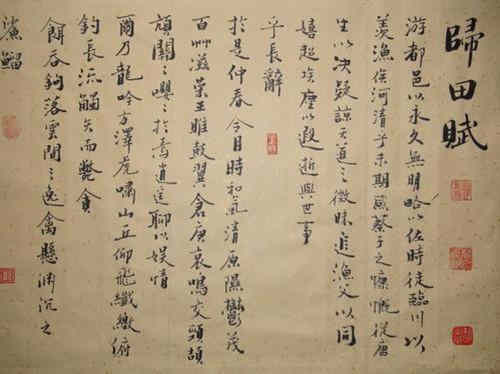 歸田賦
游都邑以永久無明略以佐時徒臨川以
羨漁俟河清乎未期感蔡子之慷慨從唐
生以決疑諒天道之微昧追漁父以同
嬉超埃塵以遐逝與世事
乎長辭
於是仲春令月時和氣清原隰鬱茂
百艸滋榮王雎鼓翼倉庚哀鳴交頸頡
頏關〻嚶〻於焉逍遙聊以娛情
爾乃龍吟方澤虎嘯山丘仰飛纖繳俯
釣長流觸矢而斃貪
餌吞鉤落雲間之逸禽懸淵沉之
鯊鰡